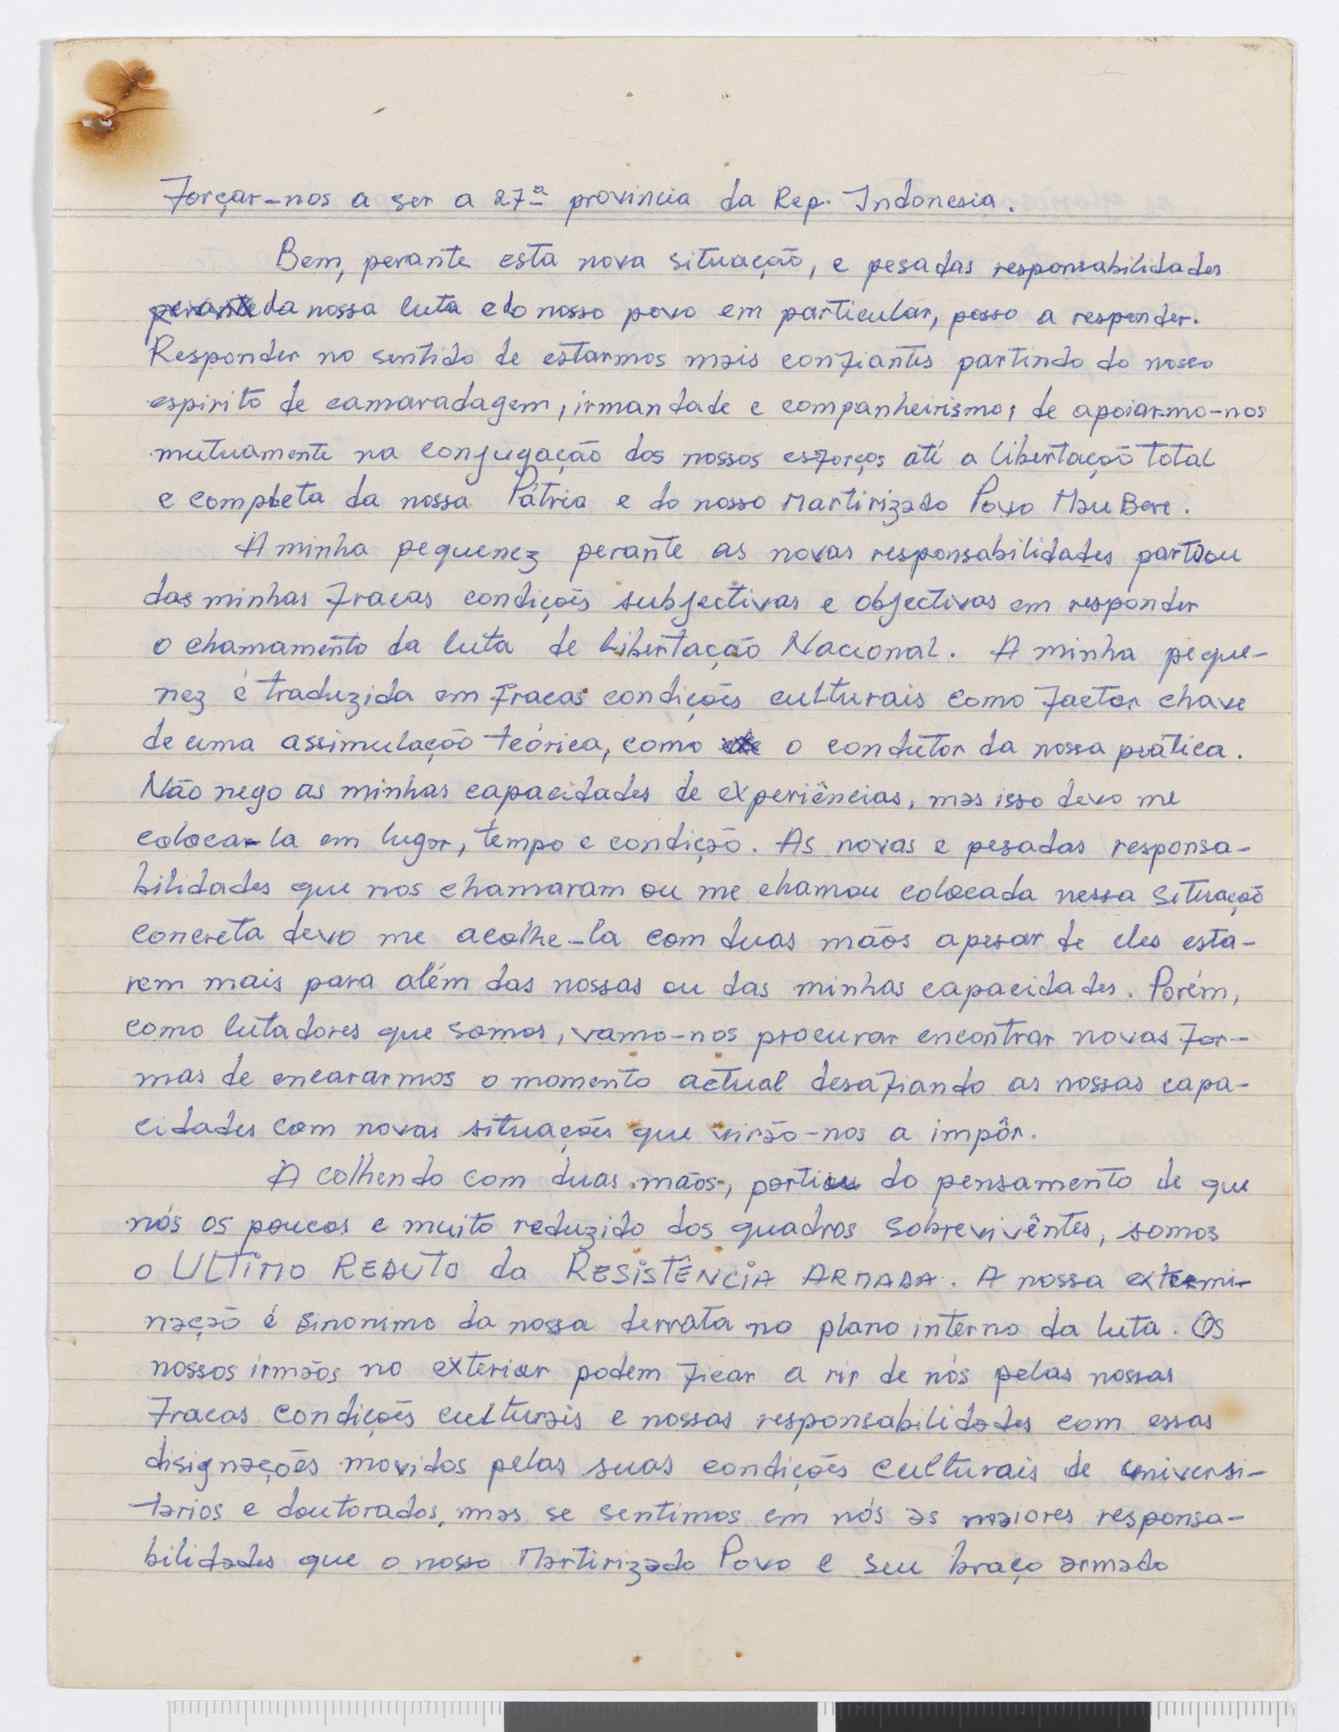 Forçar-nos a ser a 27ª provincia da Rep. Indonesia.
Bem, perante esta nova situação, e pesadas responsabilidades
perante da nossa luta e do nosso povo em particular, passo a responder.
Responder no sentido de estarmos mais confiantes partindo do nosso
espirito de camaradagem, irmandade e companheirismo, de apoiarmo-nos
mutuamente na conjugação dos nossos esforços até a libertação total
e completa da nossa Pátria e do nosso Martirizado Povo Mau Bere.
A minha pequenez perante as novas responsabilidades partiou
das minhas fracas condições subjectivas e objectivas em responder
o chamamento da luta de Libertação Nacional. A minha peque-
nez é traduzida em fracas condições culturais como factor chave
de uma assimulação teórica, como o condutor da nossa prática.
Não nego as minhas capacidades de experiências, mas isso devo me
coloca-la em lugar, tempo e condição. As novas e pesadas responsa-
bilidades que nos chamaram ou me chamou colocada nessa situação
concreta devo me acolhe-la com duas mãos apesar de eles esta-
rem mais para além das nossas ou das minhas capacidades. Porém,
como lutadores que somos, vamo-nos procurar encontrar novas for-
mas de encararmos o momento actual desafiando as nossas capa-
cidades com novas situações que virão-nos a impôr.
Acolhendo com duas mãos, partiu do pensamento de que
nós os poucos e muito reduzido dos quadros sobrevivêntes, somos
o ULTIMO REDUTO da RESISTÊNCIA ARMADA. A nossa extermi-
nação é sinonimo da nossa derrota no plano interno da luta. Os
nossos irmãos no exterior podem ficar a rir de nós pelas nossas
fracas condições culturais e nossas responsabilidades com essas
disignações movidos pelas suas condições culturais de universi-
tarios e doutorados, mas se sentimos em nós as maiores responsa-
bilidades que o nosso Martirizado Povo e seu braço armado